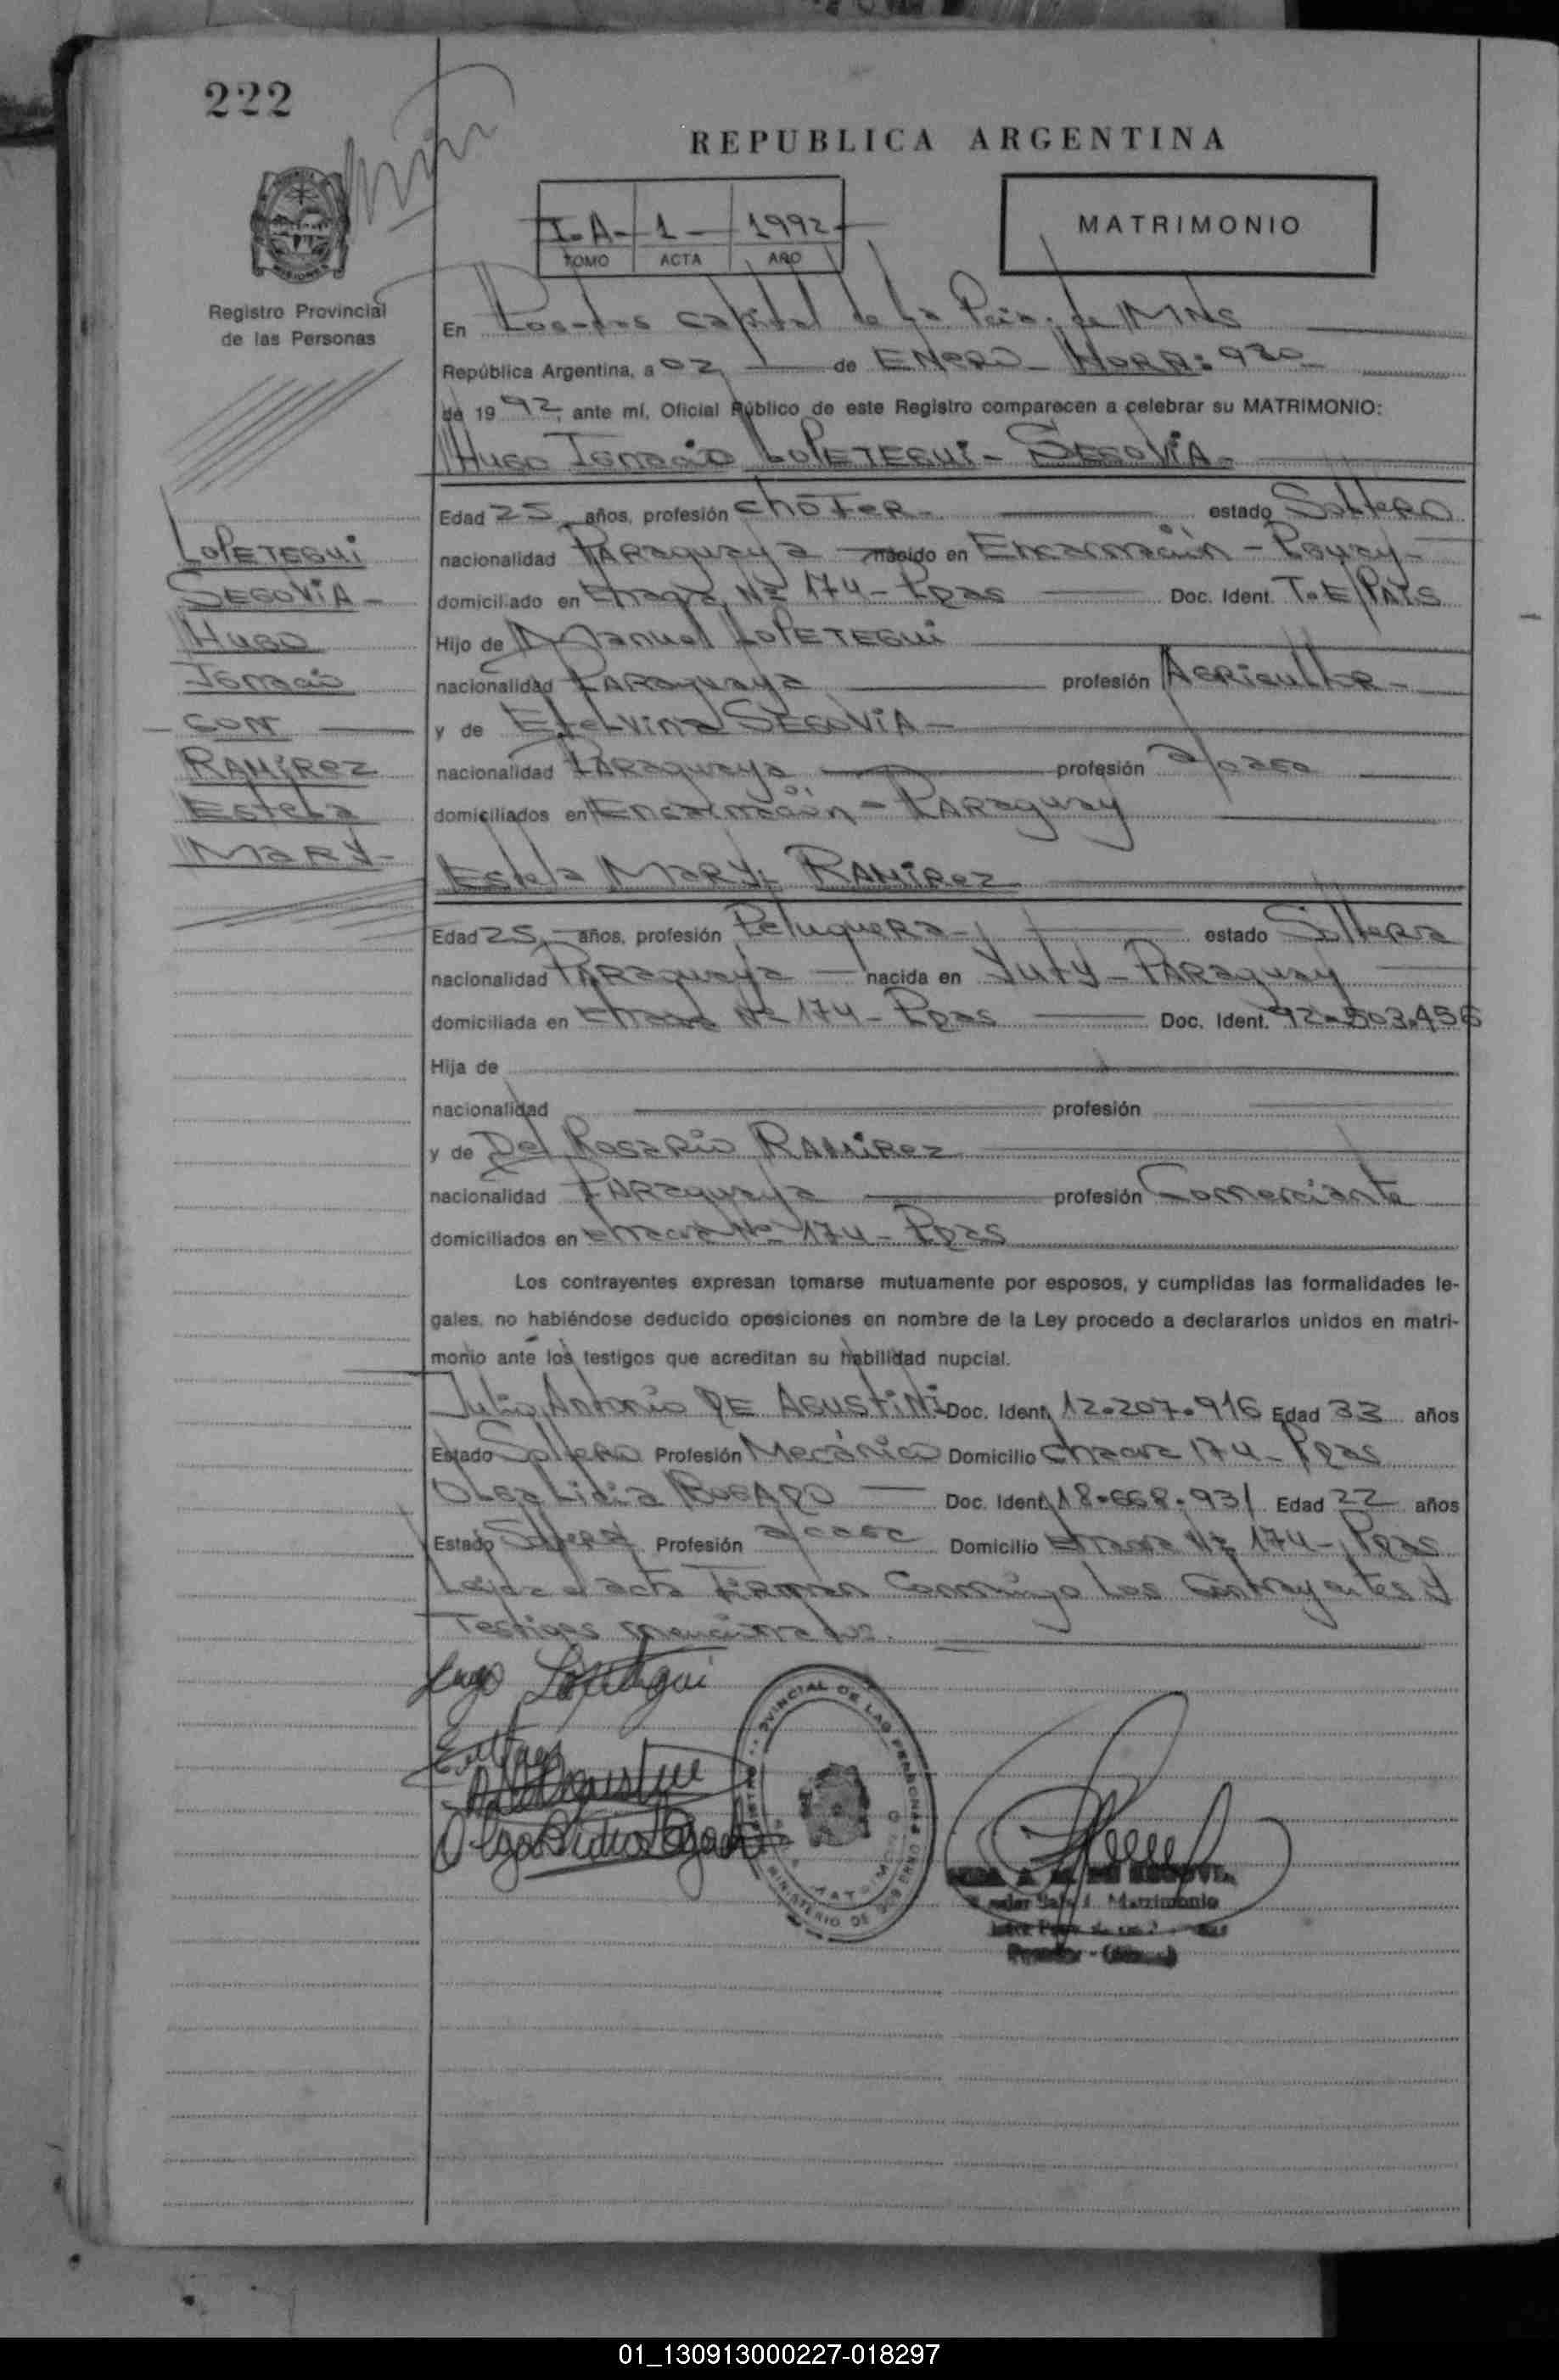 222
REPUBLICA ARGENTINA
I-A- 1- 1992-
TOMO ACTA AÑO
MATRIMONIO
Registro Provincial
de las Personas
En Posadas Capital de la Pcia. de MNS
República Argentina, a 02 de ENERO HORA: 920
de 1992 ante mí, Oficial Público de este Registro comparecen a celebrar su MATRIMONIO:
Hugo Ignacio LOPETEGUI- SEGOVIA-
Edad 25 años, profesión chofer- estado Soltero
nacionalidad Paraguaya nacido en Encarnación - Pguay-
domiciliado en Nº 174- Pdas Doc. Ident. T.E/PAIS
Hijo de Manuel LOPETEGUI
nacionalidad Paraguaya profesión Agricultor-
y de Etelvina SEGOVIA-
nacionalidad Paraguaya profesión
domiciliados en Encarnación - Paraguay
LOPETEGUI
SEGOVIA-
HUGO
Ignacio
CON
RAMIREZ
Estela
MARY-
Estela MARY- RAMIREZ
Edad 25 años, profesión Peluquera- estado Soltera
nacionalidad Paraguaya nacida en Yuty - Paraguay
domiciliada en Nº 174- Pdas Doc. Ident. 92.503.456
Hija de
nacionalidad profesión
y de Del Rosario RAMIREZ
nacionalidad Paraguaya profesión Comerciante
domiciliados en Chacra Nº 174- Pdas
Los contrayentes expresan tomarse mutuamente por esposos, y cumplidas las formalidades le-
gales, no habiéndose deducido oposiciones en nombre de la Ley procedo a declararlos unidos en matri-
monio ante los testigos que acreditan su habilidad nupcial.
Julio Antonio DE AGUSTINI Doc. Ident. 12.207.916 Edad 33 años
Estado Soltero Profesión Mecánico Domicilio Chacra 174- Pdas
Olga Lidia Doc. Ident. 18.668.931 Edad 22 años
Estado Soltera Profesión Domicilio Chacra Nº 174- Pdas
Leída el acta Firman Conmigo los Contrayentes y
Testigos mencionados.
Hugo Lopetegui
01_130913000227-018297